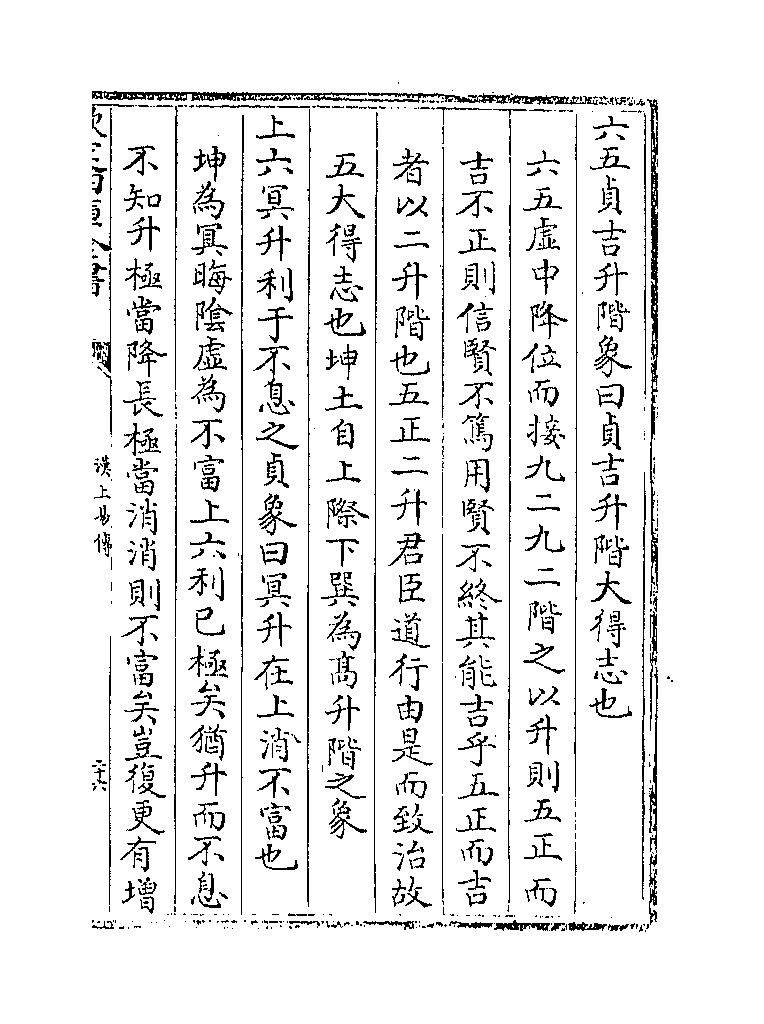 六五貞吉升階象曰貞吉升階大得志也
六五虛中降位而接九二九二階之以升則五正而
吉不正則信賢不篤用賢不終其能吉乎五正而吉
者以二升階也五正二升君臣道行由是而致治故
五大得志也坤土自上際下巽為髙升階之象
上六冥升利于不息之貞象曰冥升在上消不富也
坤為冥晦隂虛為不富上六利已極矣猶升而不息
不知升極當降長極當消消則不富矣豈復更有增
欽定四庫全書
漢上易傳
二十六